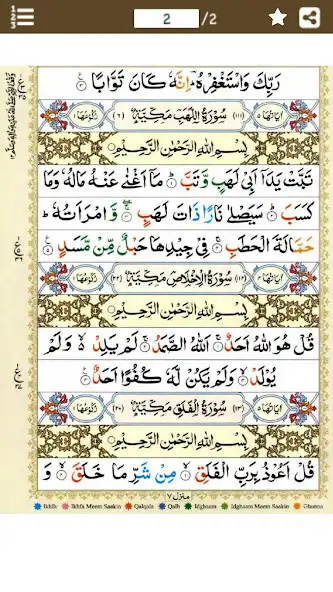 2 /2
رَبِّكَ وَاسْتَغْفِرْهُ ؔؕ اِنَّهٗ كَانَ تَوَّابًا ۝۳
اٰيَاتُهَا ۵ (۱۱۱) سُوْرَةُ اللَّهَبِ مَكِّيَّةٌ (۶) رُكُوْعُهَا ۱
بِسْمِ اللّٰهِ الرَّحْمٰنِ الرَّحِيْمِ
تَبَّتْ يَدَاۤ اَبِيْ لَهَبٍ وَّتَبَّ ۝۱ مَاۤ اَغْنٰى عَنْهُ مَالُهٗ وَمَا
كَسَبَ ۝۲ سَيَصْلٰى نَارًا ذَاتَ لَهَبٍ ۝۳ وَّامْرَاَتُهٗ ؕ
حَمَّالَةَ الْحَطَبِ ۝۴ فِيْ جِيْدِهَا حَبْلٌ مِّنْ مَّسَدٍ ۝۵
اٰيَاتُهَا ۴ (۱۱۲) سُوْرَةُ الْاِخْلَاصِ مَكِّيَّةٌ (۲۲) رُكُوْعُهَا ۱
بِسْمِ اللّٰهِ الرَّحْمٰنِ الرَّحِيْمِ
قُلْ هُوَ اللّٰهُ اَحَدٌ ۝۱ اَللّٰهُ الصَّمَدُ ۝۲ لَمْ يَلِدْ ۙ وَلَمْ
يُوْلَدْ ۝۳ وَلَمْ يَكُنْ لَّهٗ كُفُوًا اَحَدٌ ۝۴
اٰيَاتُهَا ۵ (۱۱۳) سُوْرَةُ الْفَلَقِ مَكِّيَّةٌ (۲۰) رُكُوْعُهَا ۱
بِسْمِ اللّٰهِ الرَّحْمٰنِ الرَّحِيْمِ
قُلْ اَعُوْذُ بِرَبِّ الْفَلَقِ ۝۱ مِنْ شَرِّ مَا خَلَقَ ۝۲ وَ
منزل ۷
Ikhfa Ikhfa Meem Saakin Qalqala Qalb Idghaam Idghaam Meem Saakin Ghunna